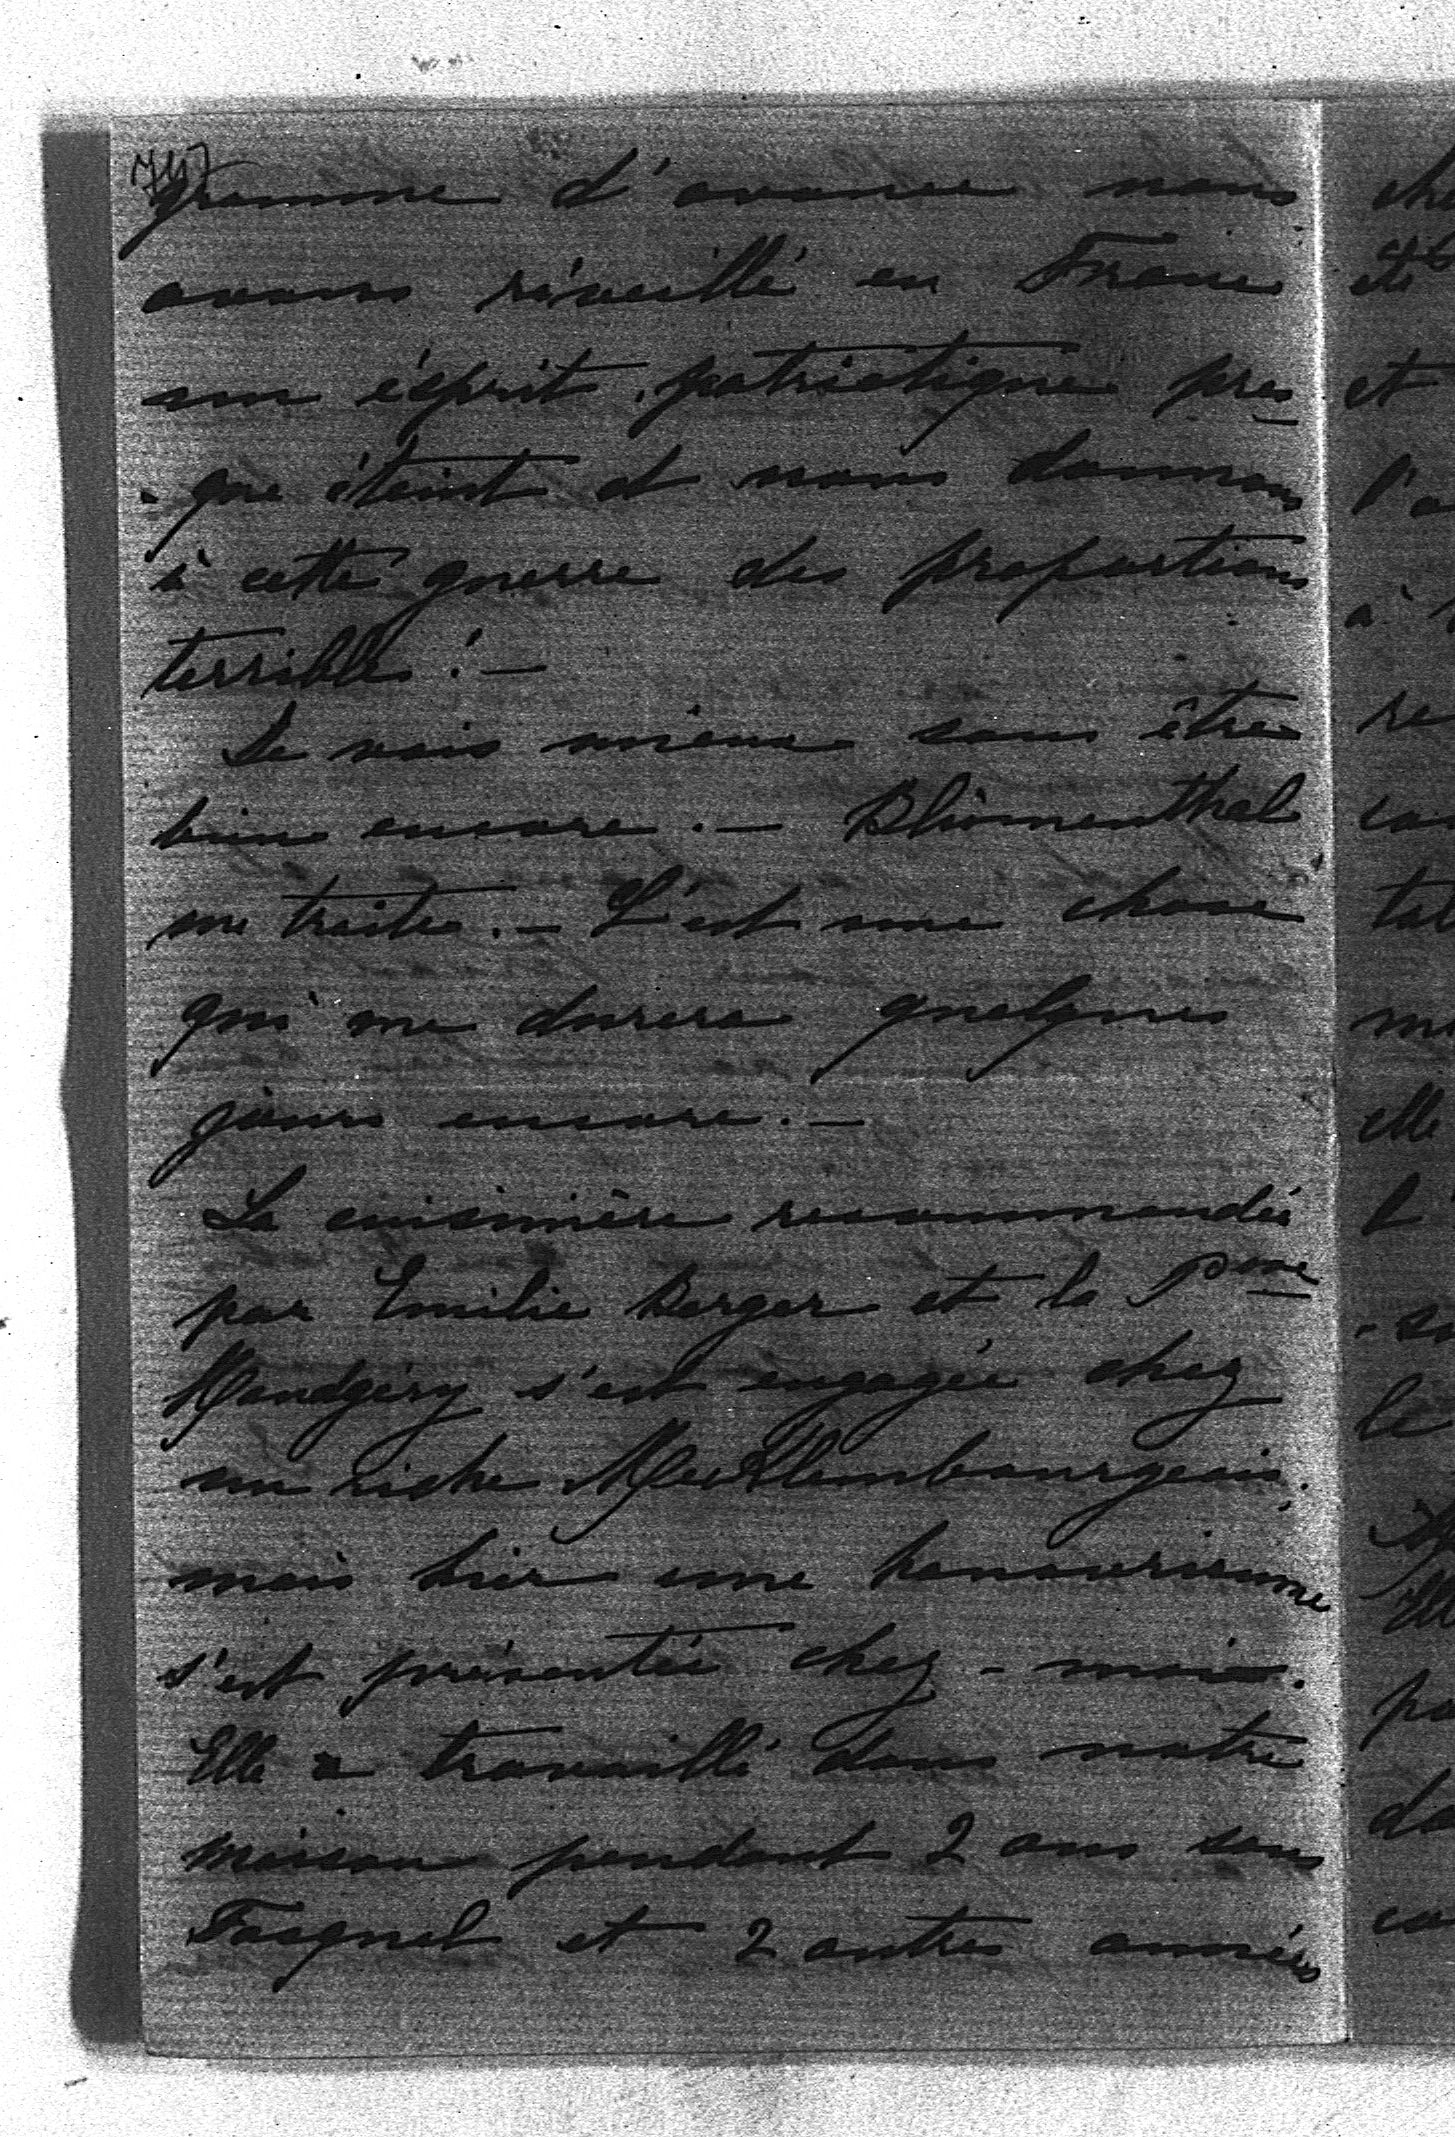 747
gramme d'avance nous
avons réveillé en France
un ésprit patriotique pres
-que éteint et nous donnons
à cette guerre des proportions
terribles! —
Je vais mieux sans être
bien encore. — Blumenthal
me traite. — C'est une chose
qui me durera quelques
jours encore. —
La cuisinière recommandée
par Emilie Berger et la Pme
s'est engagée chez
un riche Mecklembourgeois.
mais hier une hanovrienne
s'est présentée chez-moi.
Elle a travaillé dans notre
maison pendant 2 ans sous
Fasquel et 2 autres années
et
elle